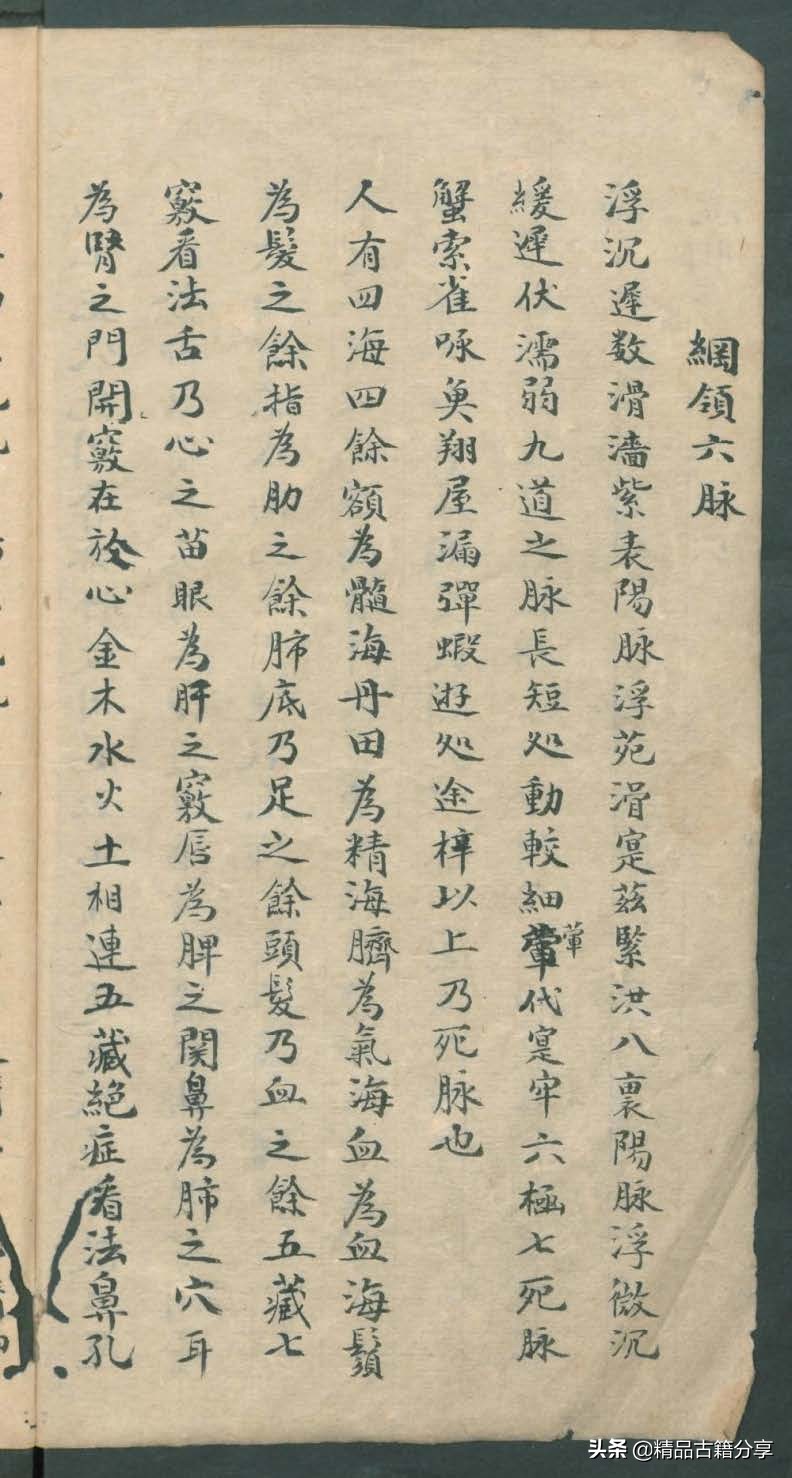 綱領六脉
浮沉遲数滑濇紫表陽脉浮芤滑寔茲緊洪八裏陽脉浮微沉
緩遲伏濡弱九道之脉長短処動較細葷代寔牢六極七死脉
葷
蟹索雀啄奐翔屋漏彈蝦逰処途梓以上乃死脉也
人有四海四餘額為髓海丹田為精海臍為氣海血為血海鬚
為髮之餘指為肋之餘肺底乃足之餘頭髮乃血之餘五藏七
竅看法舌乃心之苗眼為肝之竅唇為脾之関鼻為肺之穴耳
為腎之門開竅在於心金木水火土相連五藏絕症看法鼻孔
头条 @精品古籍分享